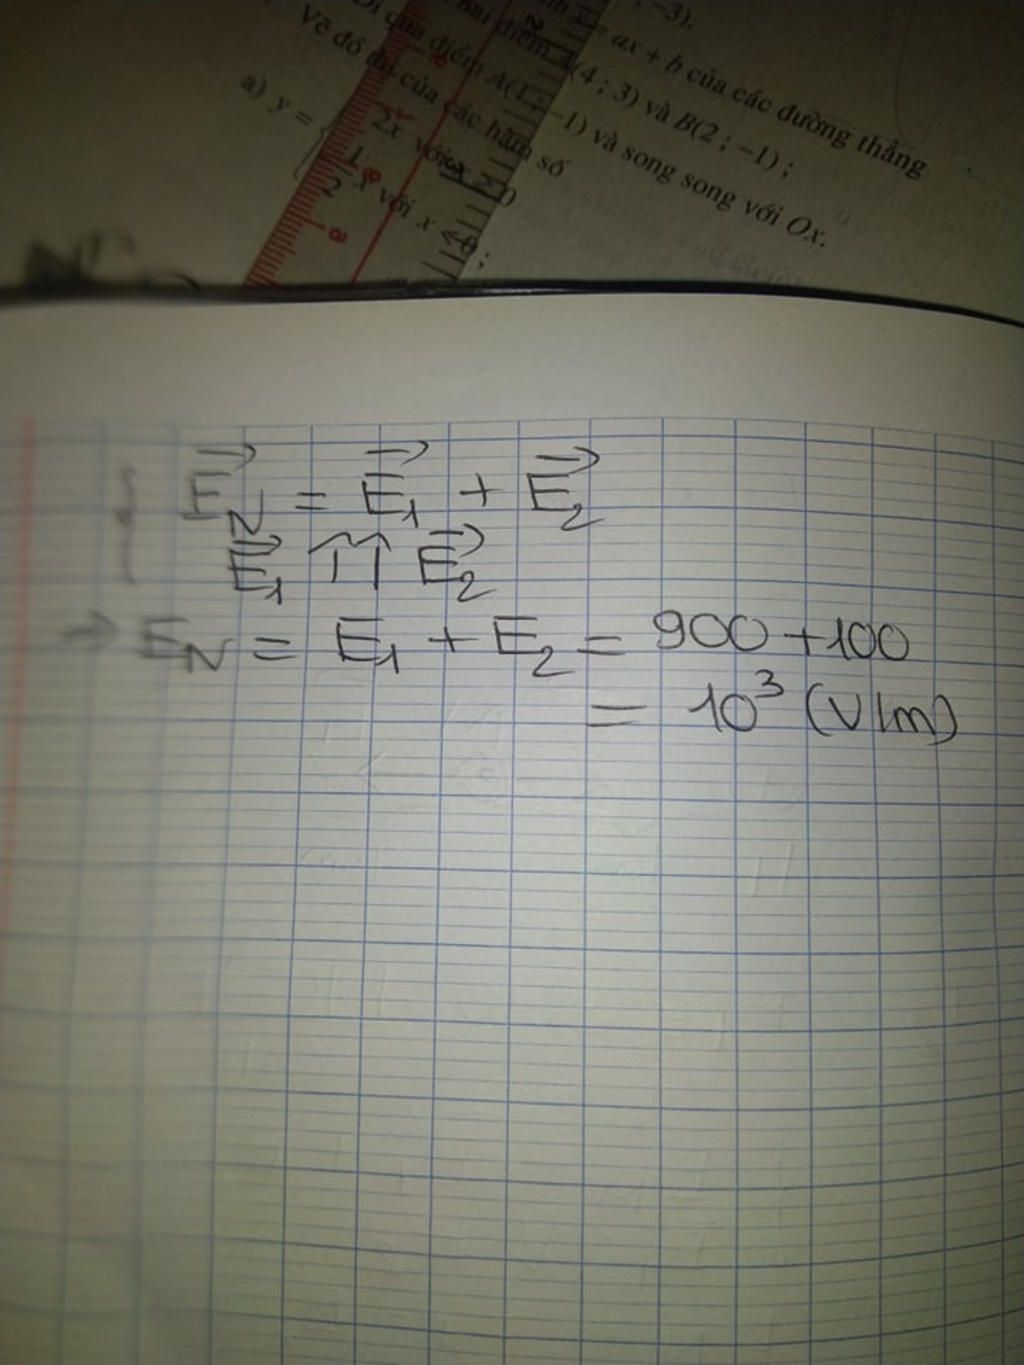 ; -3).
= ax + b của các đường thẳng
hai điểm (4 ; 3) và B(2 ; -1) ;
Đi qua điểm A(1 ; -1) và song song với Ox.
Vẽ đồ thị của các hàm số
a) y =
2x với
1/2 x với x < 0 ;
E⃗_N = E⃗_1 + E⃗_2
E⃗_1 ↑↑ E⃗_2
⇒ E_N = E_1 + E_2 = 900 + 100
= 10³ (V/m)